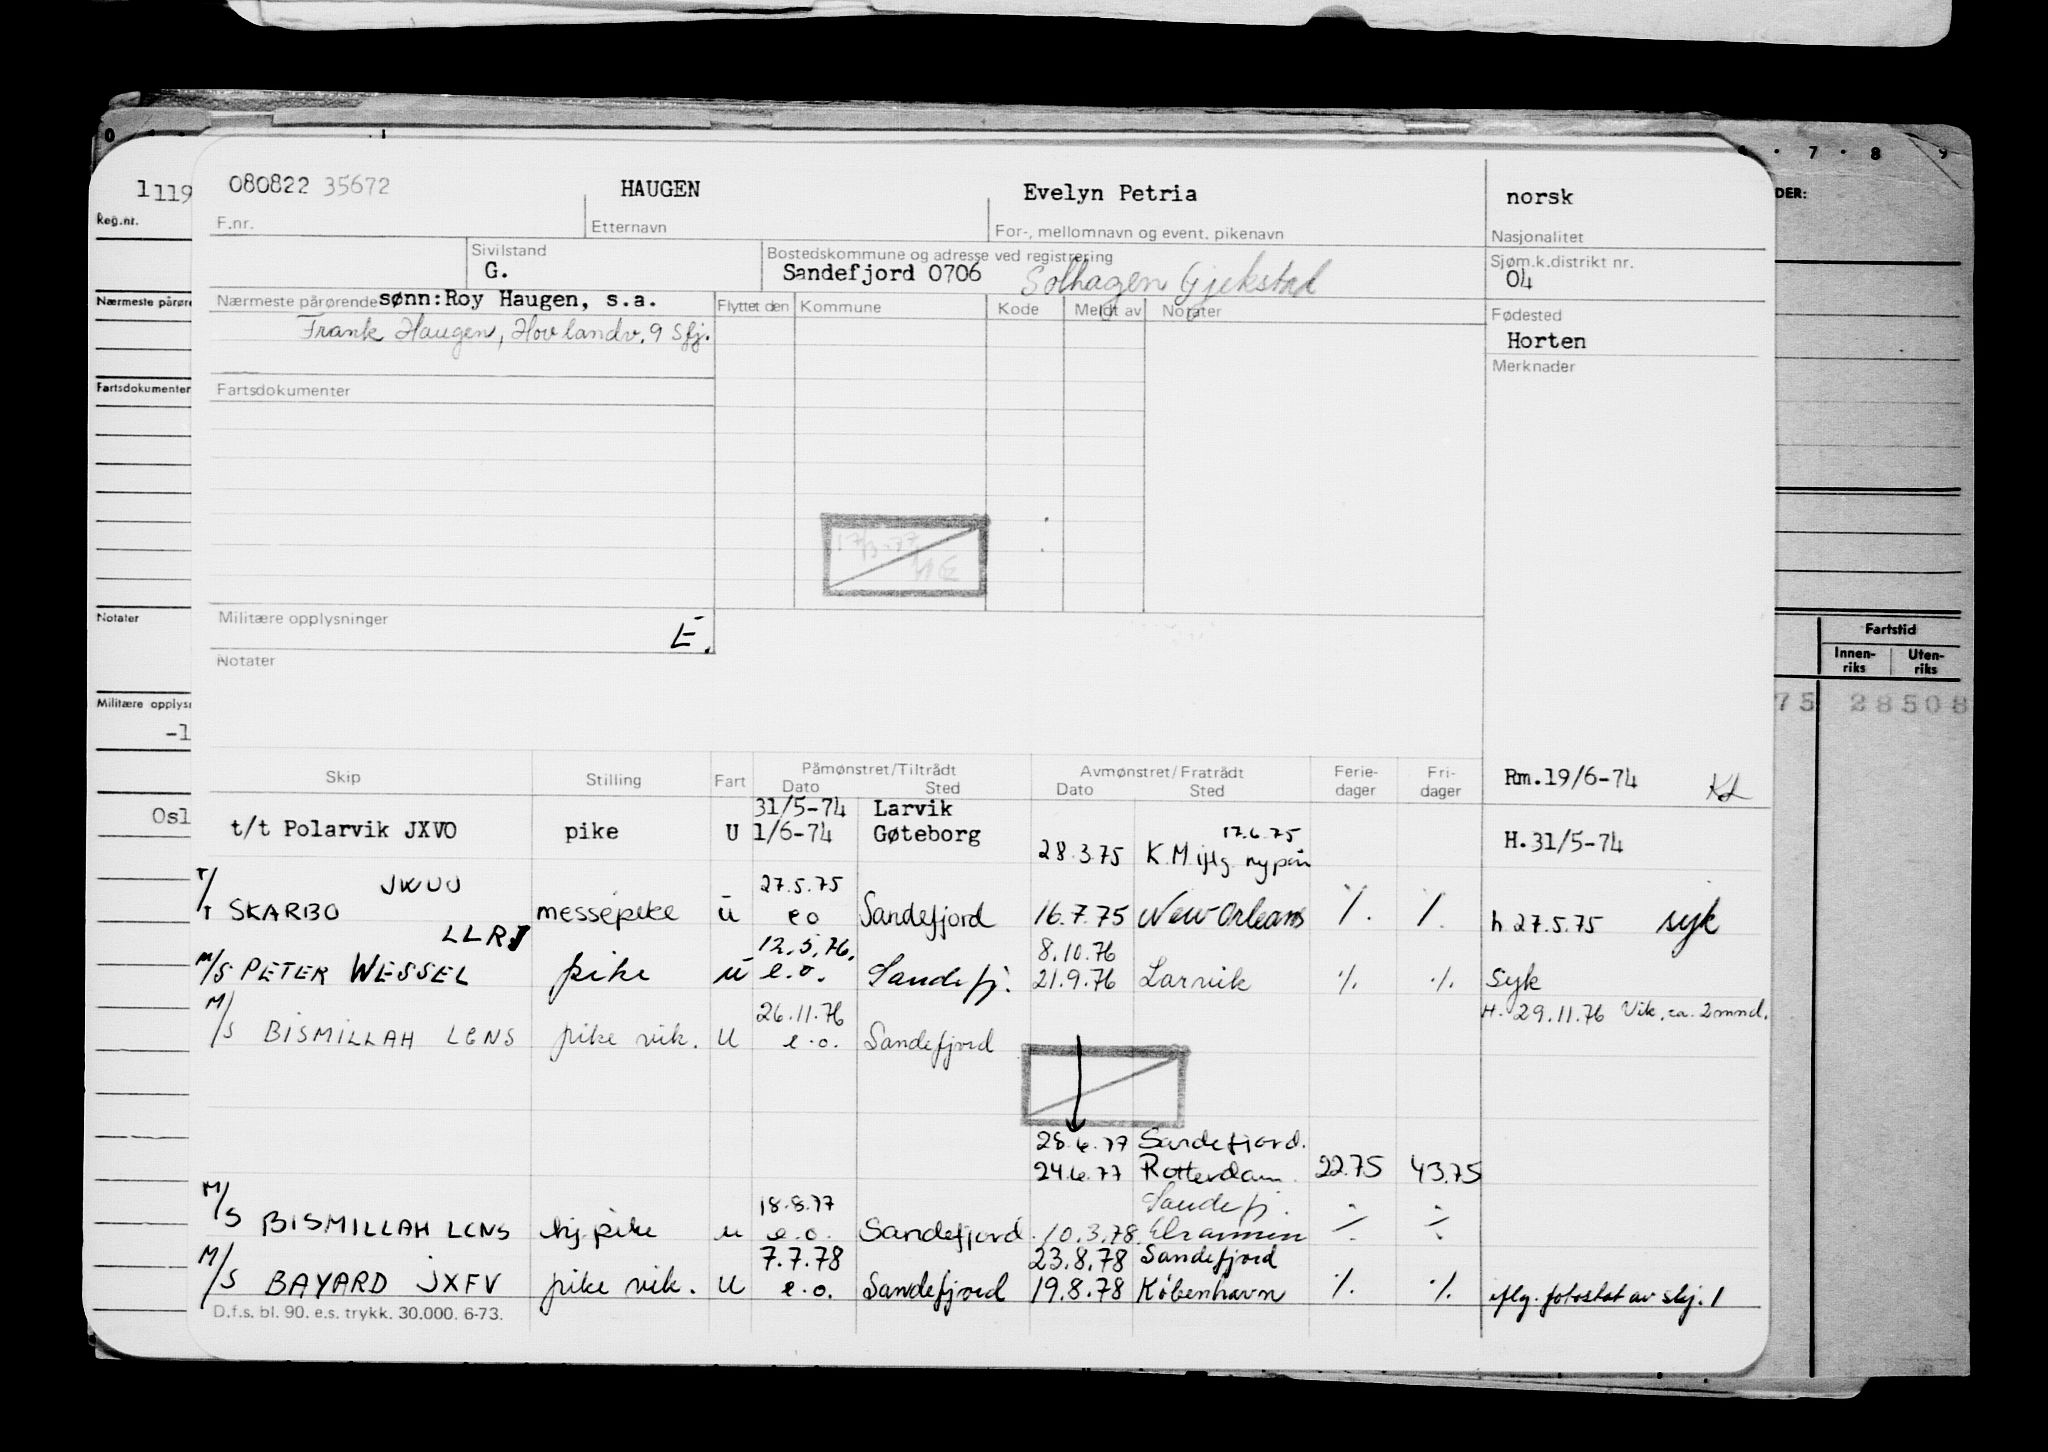 0
7 8 9
1119
Reg.nr.
Nærmeste pårøre
Fartsdokumenter
Notater
Militære opplysn
-1
Osl
DER:
Fartstid
Innen-riks Uten-riks
75 28508
080822 35672 HAUGEN Evelyn Petria norsk
F.nr. Etternavn For-, mellomnavn og event. pikenavn Nasjonalitet
Sivilstand Bostedskommune og adresse ved registrering Sjøm.k.distrikt nr.
G. Sandefjord 0706 Solhagen Gjekstad 04
Nærmeste pårørende sønn:Roy Haugen, s.a. Flyttet den Kommune Kode Meldt av Notater Fødested
Frank Haugen, Hovlandv. 9 Sfj. Horten
Merknader
Fartsdokumenter
Militære opplysninger
E.
Notater
Skip Stilling Fart Påmønstret/Tiltrådt Avmønstret/Fratrådt Ferie-dager Fri-dager Rm.19/6-74 KL
Dato Sted Dato Sted
31/5-74 Larvik
t/t Polarvik JXVO pike U 1/6-74 Gøteborg 17.6.75 H.31/5-74
28.3.75 K.M iflg. ny påm
JWUO 27.5.75
T/T SKARBO messepike u eo Sandefjord 16.7.75 New Orleans ./. ./. h 27.5.75 syk
LLRJ 12.5.76. 8.10.76
M/S PETER WESSEL pike u e.o. Sandefj. 21.9.76 Larvik ./. ./. Syk
26.11.76 H. 29.11.76 Vik. ca. 2 mnd.
M/S BISMILLAH LCNS pike vik. U e.o. Sandefjord
28.6.77 Sandefjord.
24.6.77 Rotterdam. 22.75 43.75
18.8.77 Sandefj.
M/S BISMILLAH LCNS pike u e.o. Sandefjord 10.3.78. ./. ./.
7.7.78 23.8.78 Sandefjord
M/S BAYARD JXFV pike vik. U e.o. Sandefjord 19.8.78 København ./. ./. iflg. fotostat av skj. 1
D.f.s. bl. 90. e.s. trykk. 30.000. 6-73.